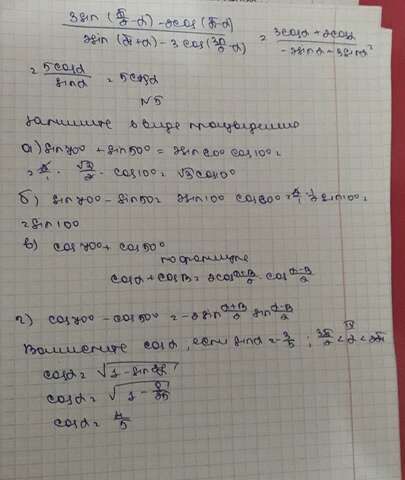 3sin(π/2-α)-2cos(π-α) / 2sin(π+α)-3cos(3π/2-α) = 3cosα+2cosα / -2sinα-3sinα
= 5cosα / sinα = 5cosα
N5
Запишите в виде произведения
а) sin70°+sin50° = 2sin60°cos10° =
= 2/1 · √3/2 · cos10° = √3cos10°
б) sin70°-sin50° = sin10° cos60° = 2/1 · 1/2 sin10° =
= sin10°
в) cos70°+cos50°
cosα+cosβ = 2cos α+β/2 · cos α-β/2
г) cos70°-cos50° = -2sin α+β/2 sin α-β/2
cosα, если sinα = -3/5 ; 3π/2 < α < 2π
IV
cosα = √1-sin²α
cosα = √1-9/25
cosα = 4/5